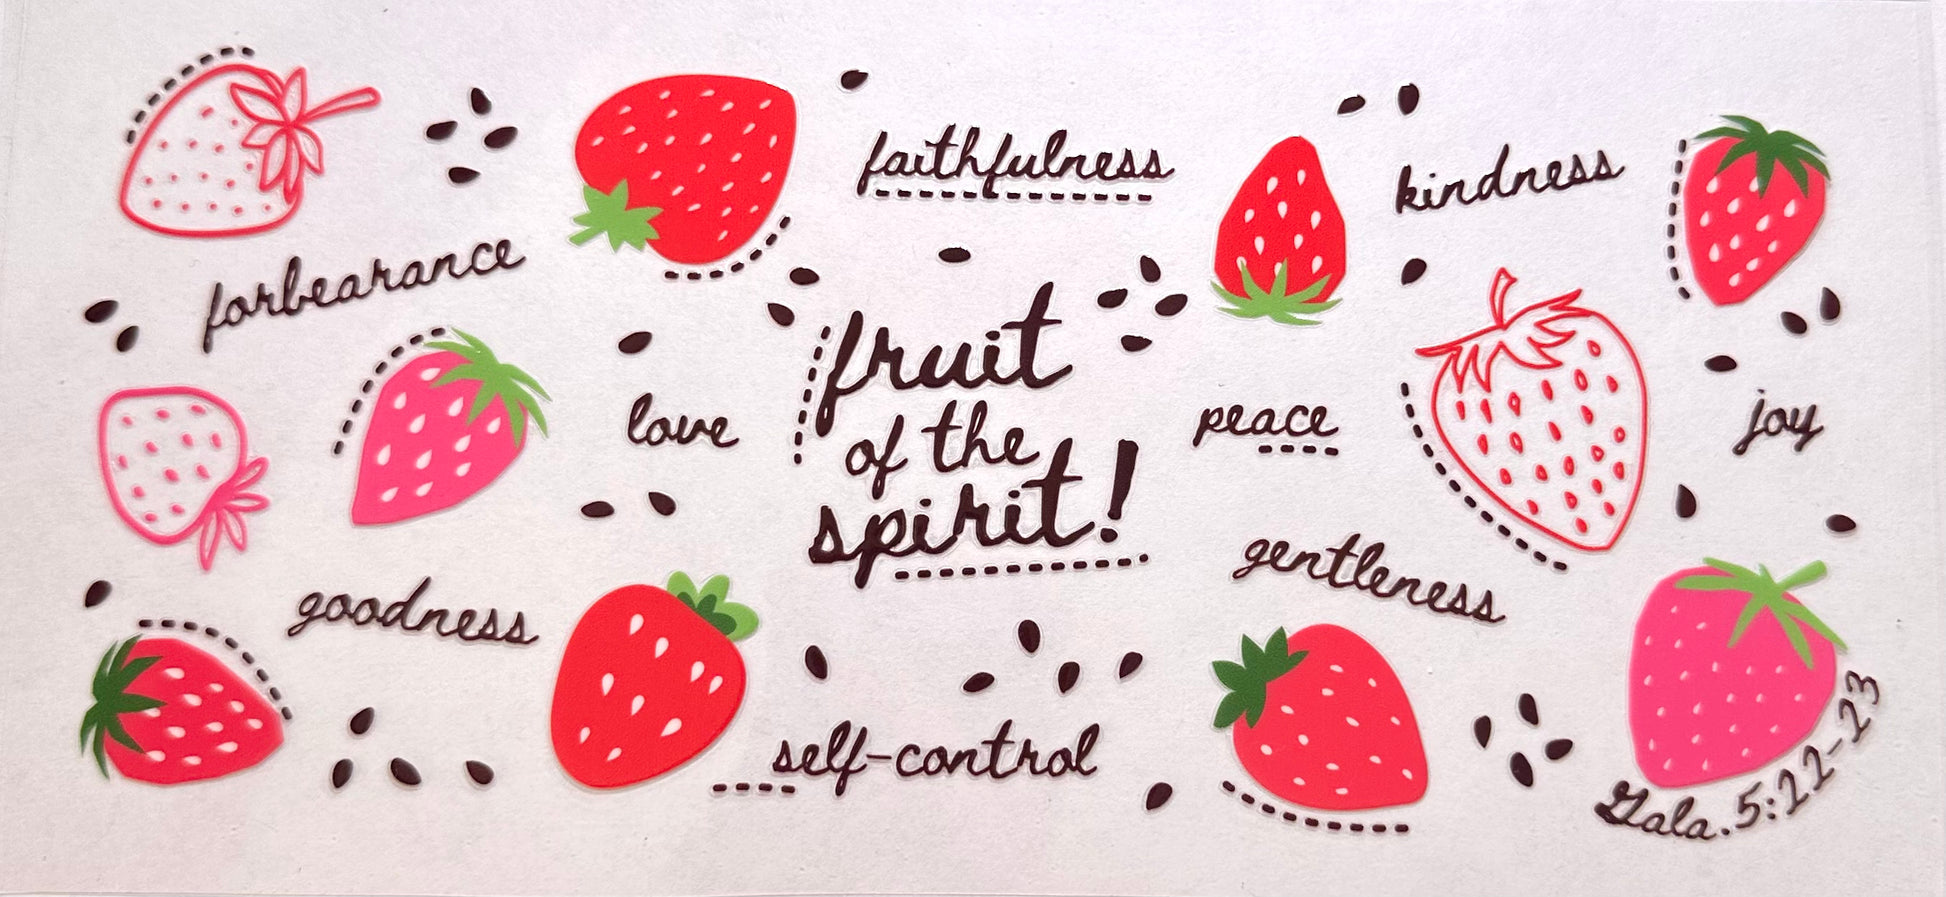 faithfulness
kindness
forbearance
fruit
of the
spirit!
love
peace
joy
gentleness
goodness
self-control
Gala. 5:22-23